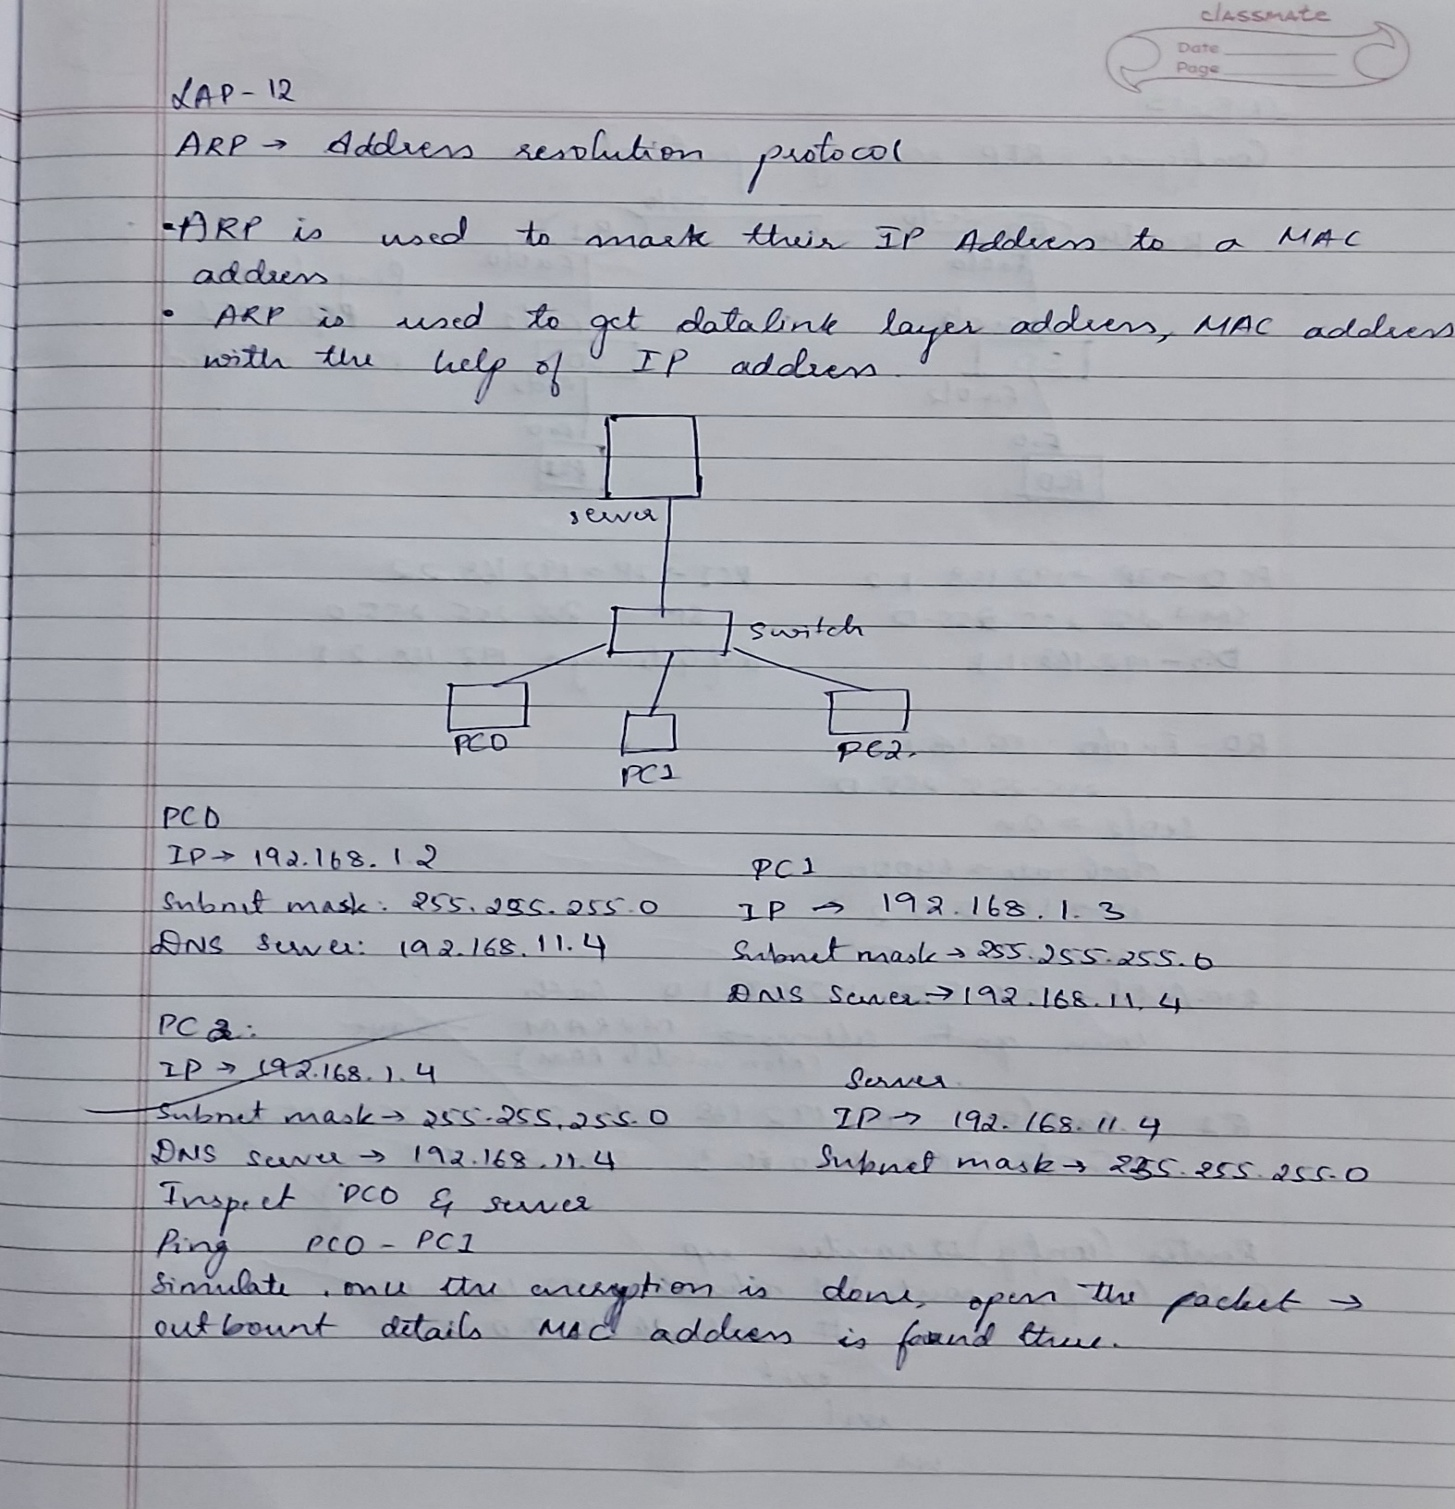 classmate
Date
Page
LAP-12
ARP → Address resolution protocol
•ARP is used to mark their IP Address to a MAC
address
• ARP is used to get datalink layer address, MAC address
with the help of IP address.
server
switch
PC0
PC1
PC2.
PC0
IP → 192.168.1.2
Subnet mask: 255.255.255.0
DNS server: 192.168.11.4
PC1
IP → 192.168.1.3
Subnet mask → 255.255.255.0
DNS Server → 192.168.11.4
PC2:
IP → 192.168.1.4
Subnet mask → 255.255.255.0
DNS server → 192.168.11.4
Server
IP → 192.168.11.4
Subnet mask → 255.255.255.0
Inspect PC0 & server
Ping PC0 - PC1
Simulate, once the encryption is done, open the packet →
outbount details MAC address is found there.